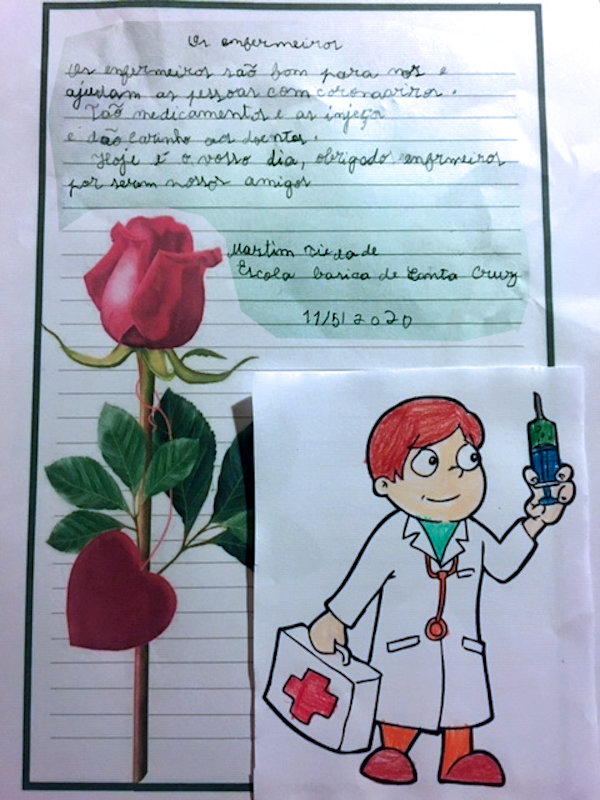 Os enfermeiros
Os enfermeiros são bom para nos e
ajudam as pessoas com coronaviros.
Tão medicamentos e as injeça
e dão carinho aos doentes.
Hoje é o vosso dia, obrigados enfrmeiros
por serem nossos amigos
Martim Piedade
Escola basica de Santa Cruz
11/5/2020